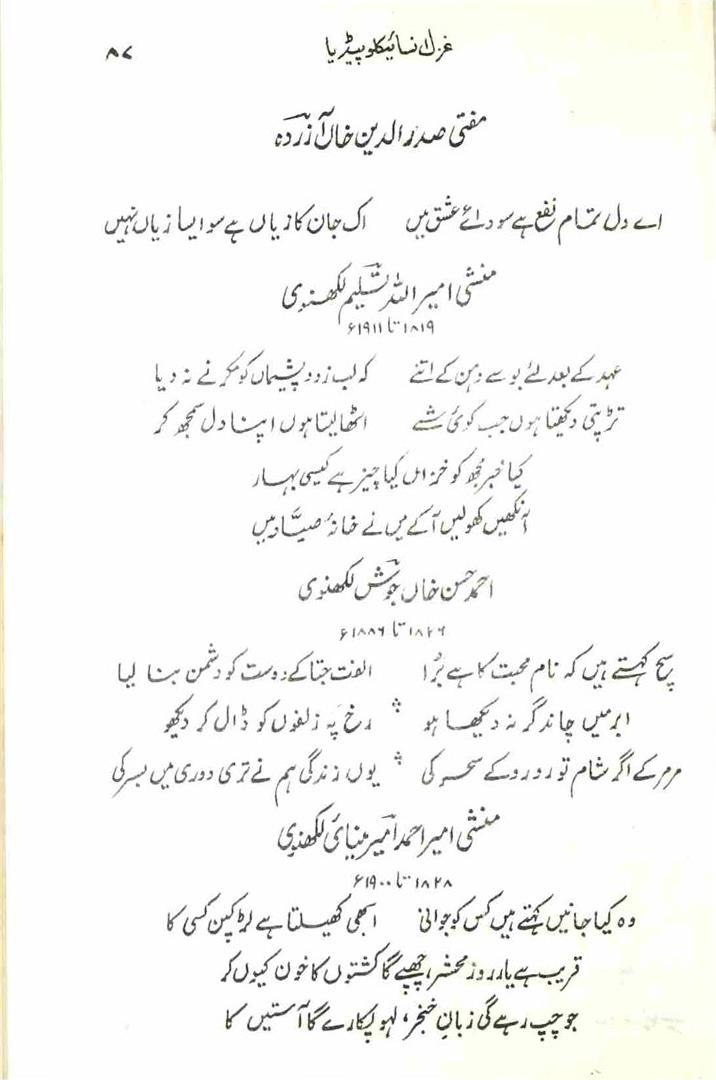 غزل انسائیکلوپیڈیا ۸۷
مفتی صدر الدین خاں آزردہ
اے دل تمام نفع ہے سودائے عشق میں اک جان کا زیاں ہے سو ایسا زیاں نہیں
منشی امیر اللہ تسلیم لکھنوی
۱۸۱۹ تا ۱۹۱۱ء
عہد کے بعد لئے بوسے دہن کے اتنے کہ لب زود پشیماں کو مکرنے نہ دیا
تڑپتی دیکھتا ہوں جب کوئی شے اٹھا لیتا ہوں اپنا دل سمجھ کر
کیا خبر مجھ کو خزاں کیا چیز ہے کیسی بہار
آنکھیں کھولیں آکے میں نے خانۂ صیّاد میں
احمد حسن خاں جوش لکھنوی
۱۸۲۶ تا ۱۸۸۶ء
سچ کہتے ہیں کہ نام محبت کا ہے بُرا الفت جتا کے دوست کو دشمن بنا لیا
ابر میں چاند گر نہ دیکھا ہو رخ پہ زلفوں کو ڈال کر دیکھو
مرمر کے اگر شام تو رو رو کے سحر کی یوں زندگی ہم نے تری دوری میں بسر کی
منشی امیر احمد امیر مینائی لکھنوی
۱۸۲۸ تا ۱۹۰۰ء
وہ کیا جانیں کہتے ہیں کس کو جوانی ابھی کھیلتا ہے لڑکپن کسی کا
قریب ہے یار روز محشر، چھپے گا کشتوں کا خون کیوں کر
جو چپ رہے گی زبانِ خنجر، لہو پکارے گا آستیں کا